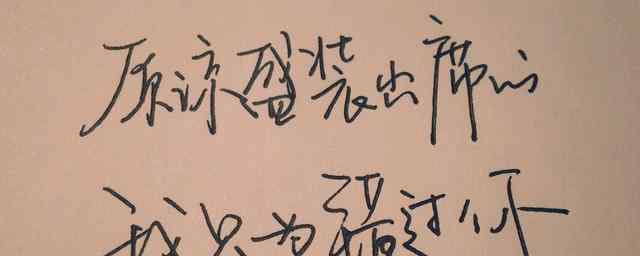 原谅盛装出席的
我只为错过你